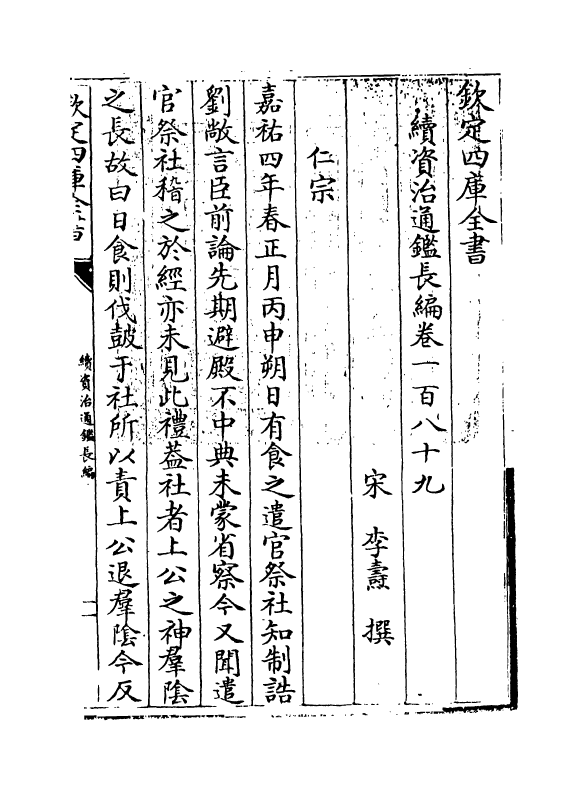 欽定四庫全書
續資治通鑑長編卷一百八十九
宋 李燾 撰
仁宗
嘉祐四年春正月丙申朔日有食之遣官祭社知制誥
劉敞言臣前論先期避殿不中典未蒙省察今又聞遣
官祭社稽之於經亦未見此禮葢社者上公之神羣陰
之長故曰日食則伐鼓于社所以責上公退羣陰今反
欽定四庫全書
續資治通鑑長編
一